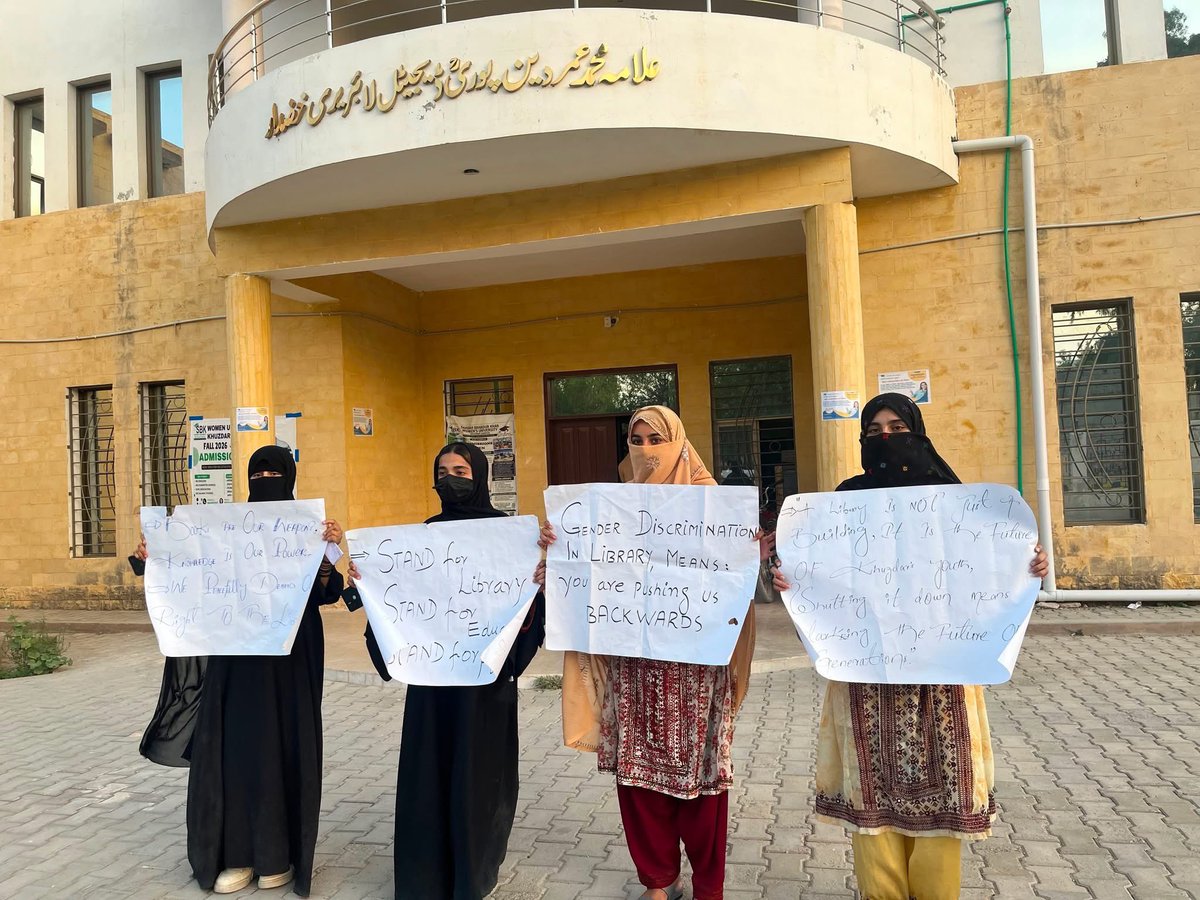 علامہ محمد عمر دین پوریؒ ڈیجیٹل لائبریری خضدار
SBK
WOMEN U
KHUZDAR
FALL 2026
ADMISS
Books are Our Weapons.
Knowledge is Our Power.
We Peacefully Demand
Right To The
→ STAND for
Library
STAND for
Educ
STAND for
GENDER DISCRIMINATION
IN LIBRARY, MEANS:
you are pushing us
BACKWARDS
→"A Library Is NOT Just a
Building, It Is the Future
OF Khuzdar's Youth,
Shutting it down means
the Future OF
Generations"